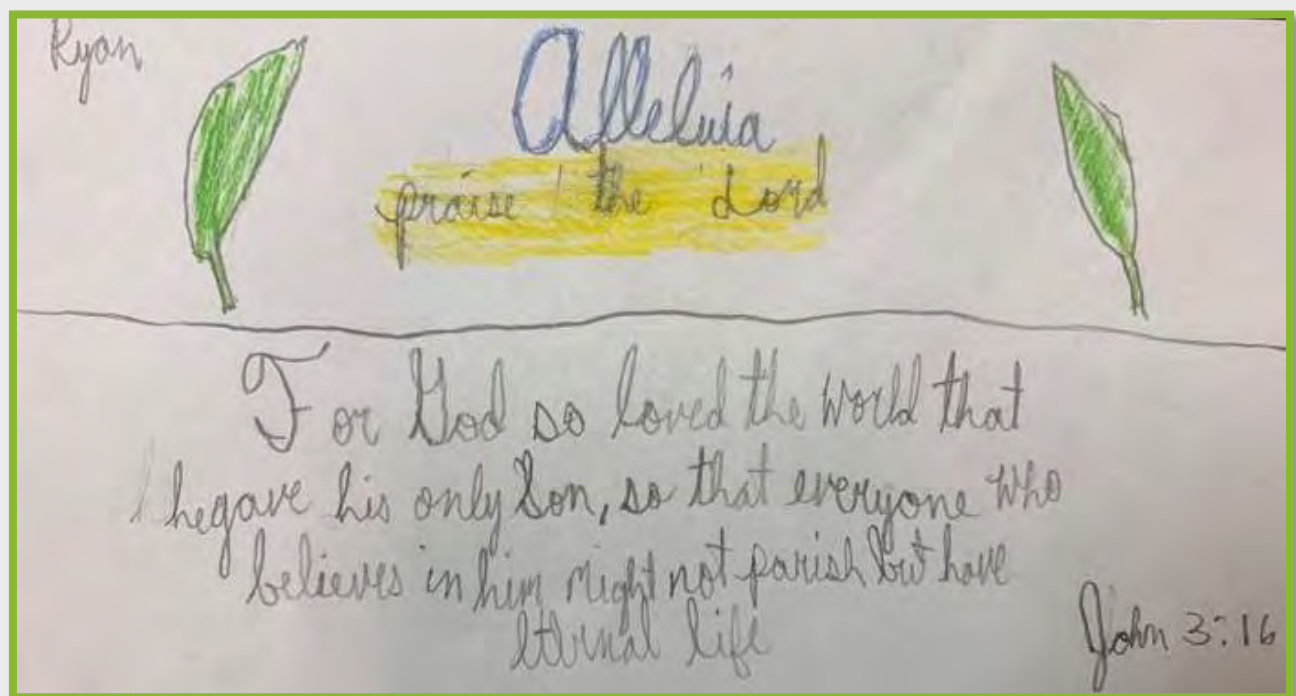 Ryan
Alleluia
praise the Lord
For God so loved the world that
he gave his only Son, so that everyone who
believes in him might not parish but have
eternal life
John 3:16